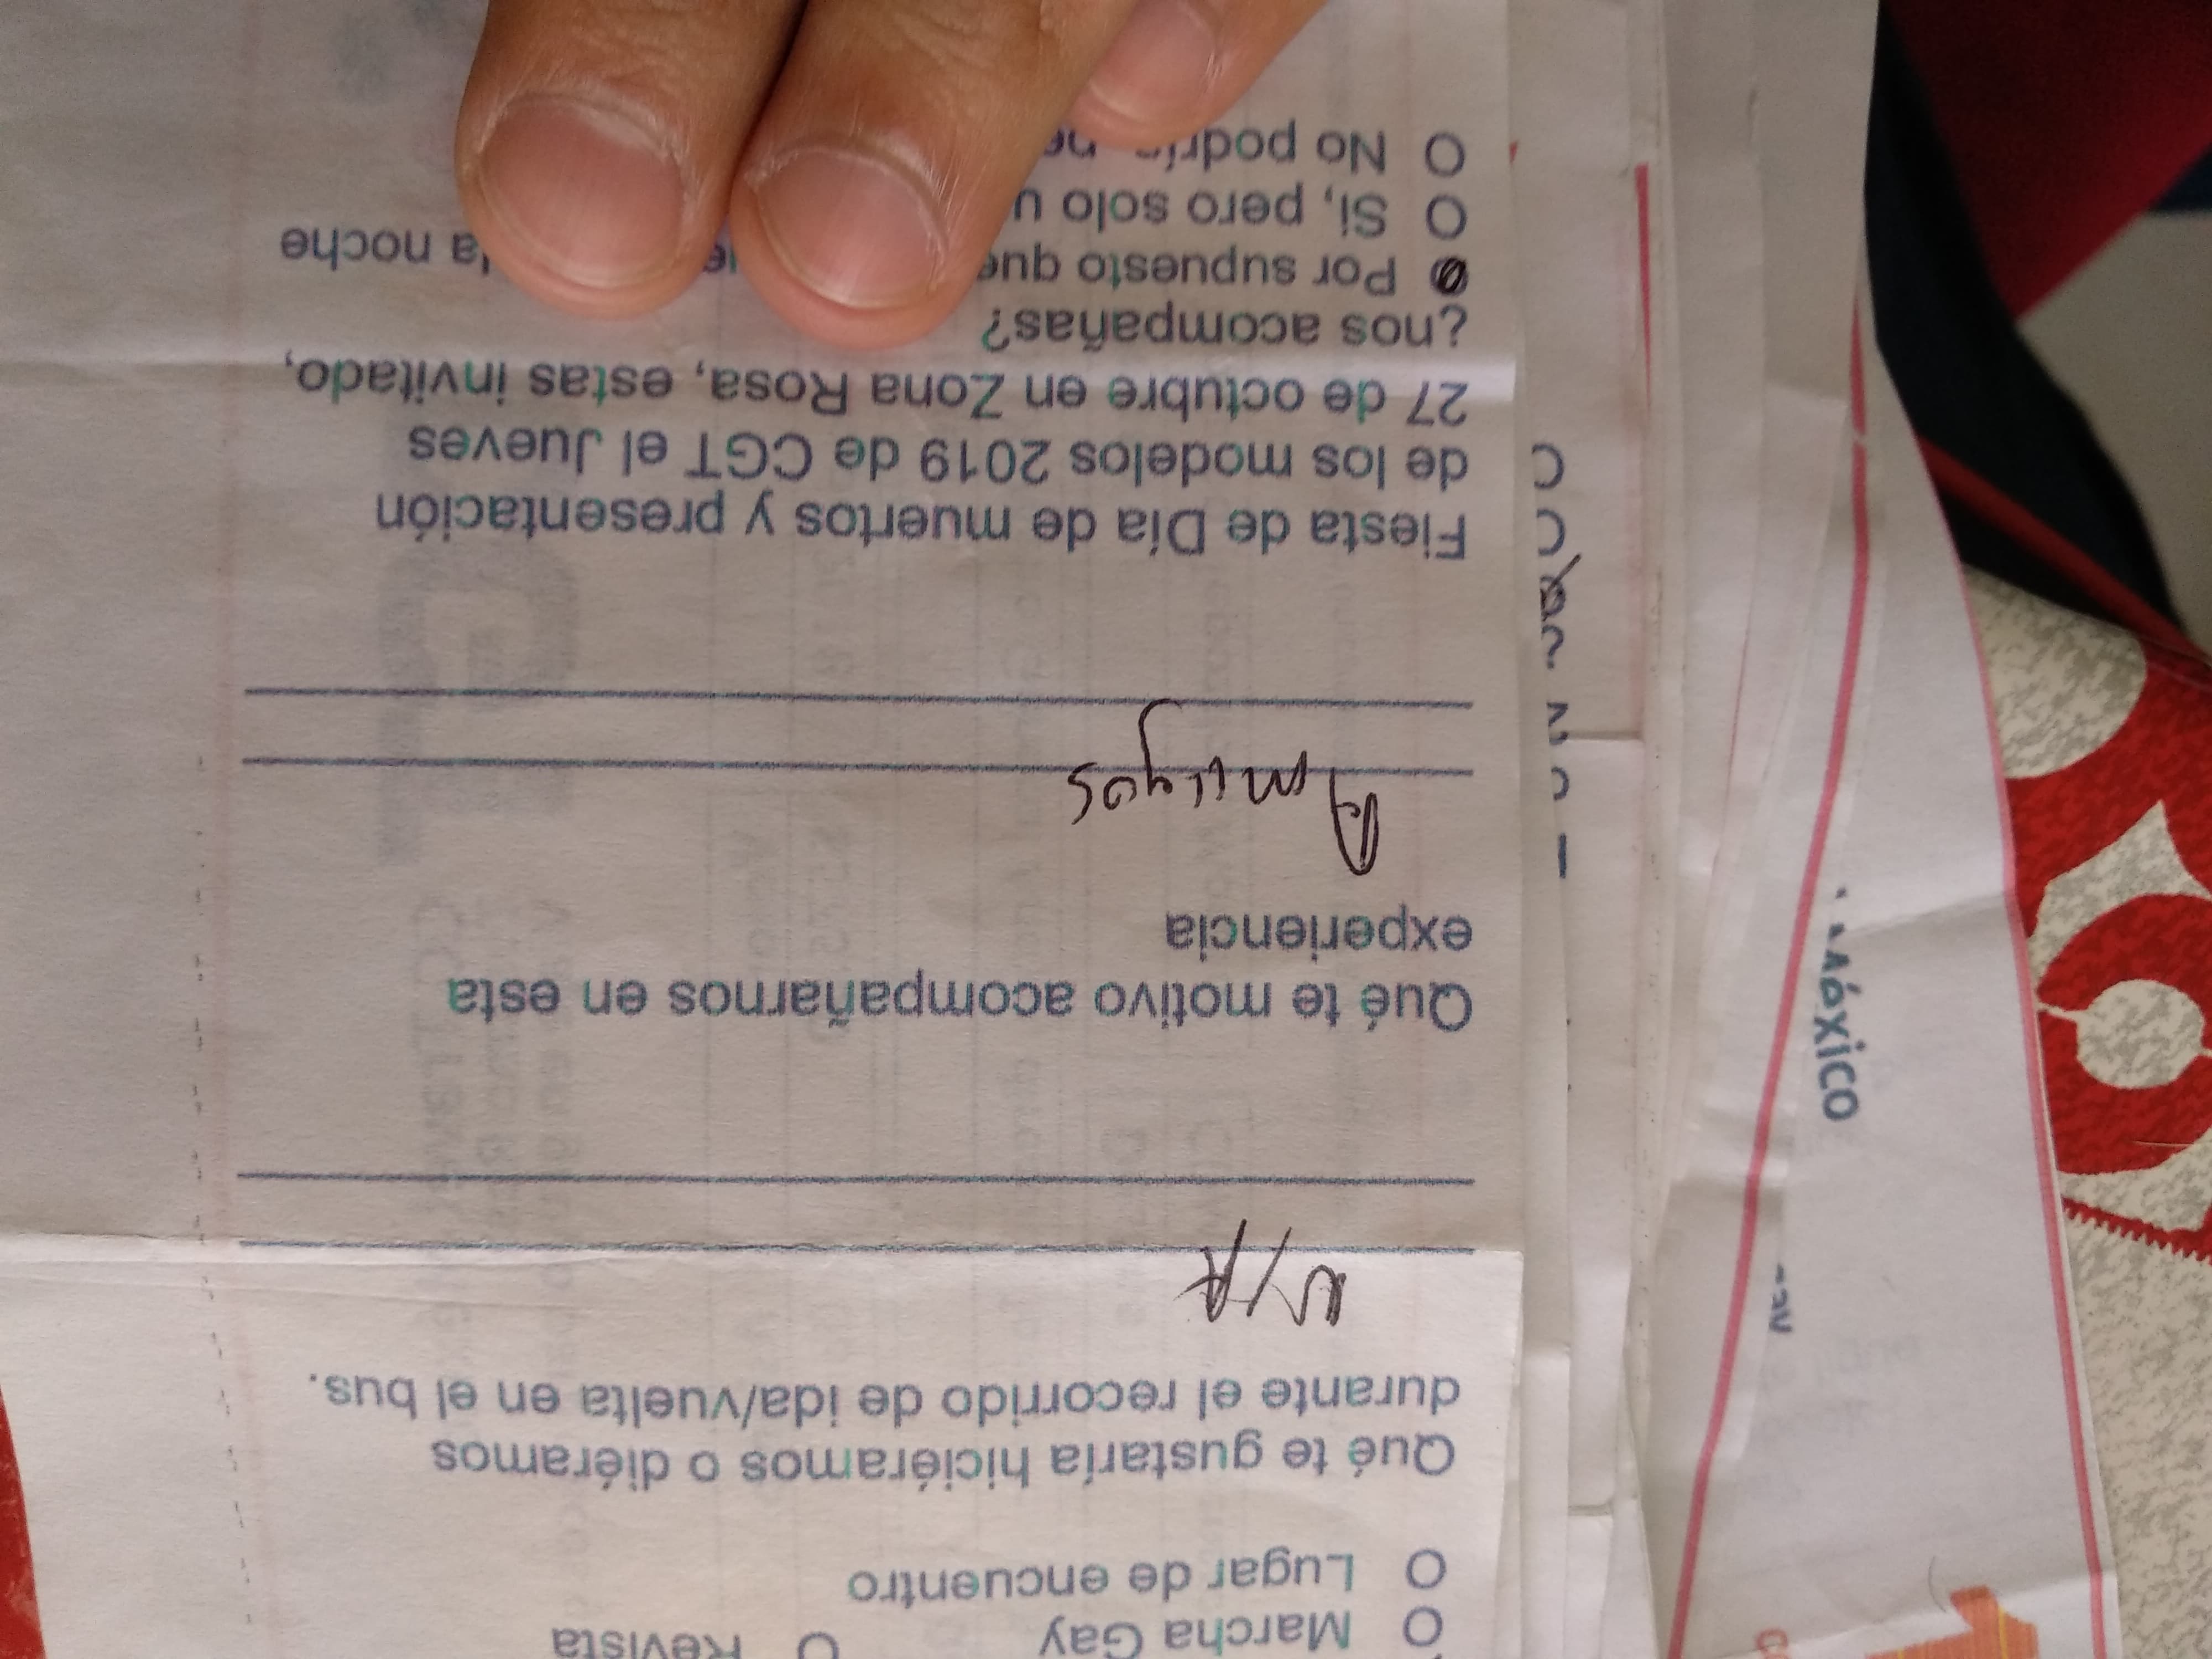 Marcha Gay
Revista
Lugar de encuentro
Qué te gustaría hiciéramos o diéramos
durante el recorrido de ida/vuelta en el bus.
N/A
Qué te motivo acompañarnos en esta
experiencia
Amigos
Fiesta de Día de muertos y presentación
de los modelos 2019 de CGT el Jueves
27 de octubre en Zona Rosa, estas invitado,
¿nos acompañas?
Por supuesto que la noche
Si, pero solo
No
MéXICO